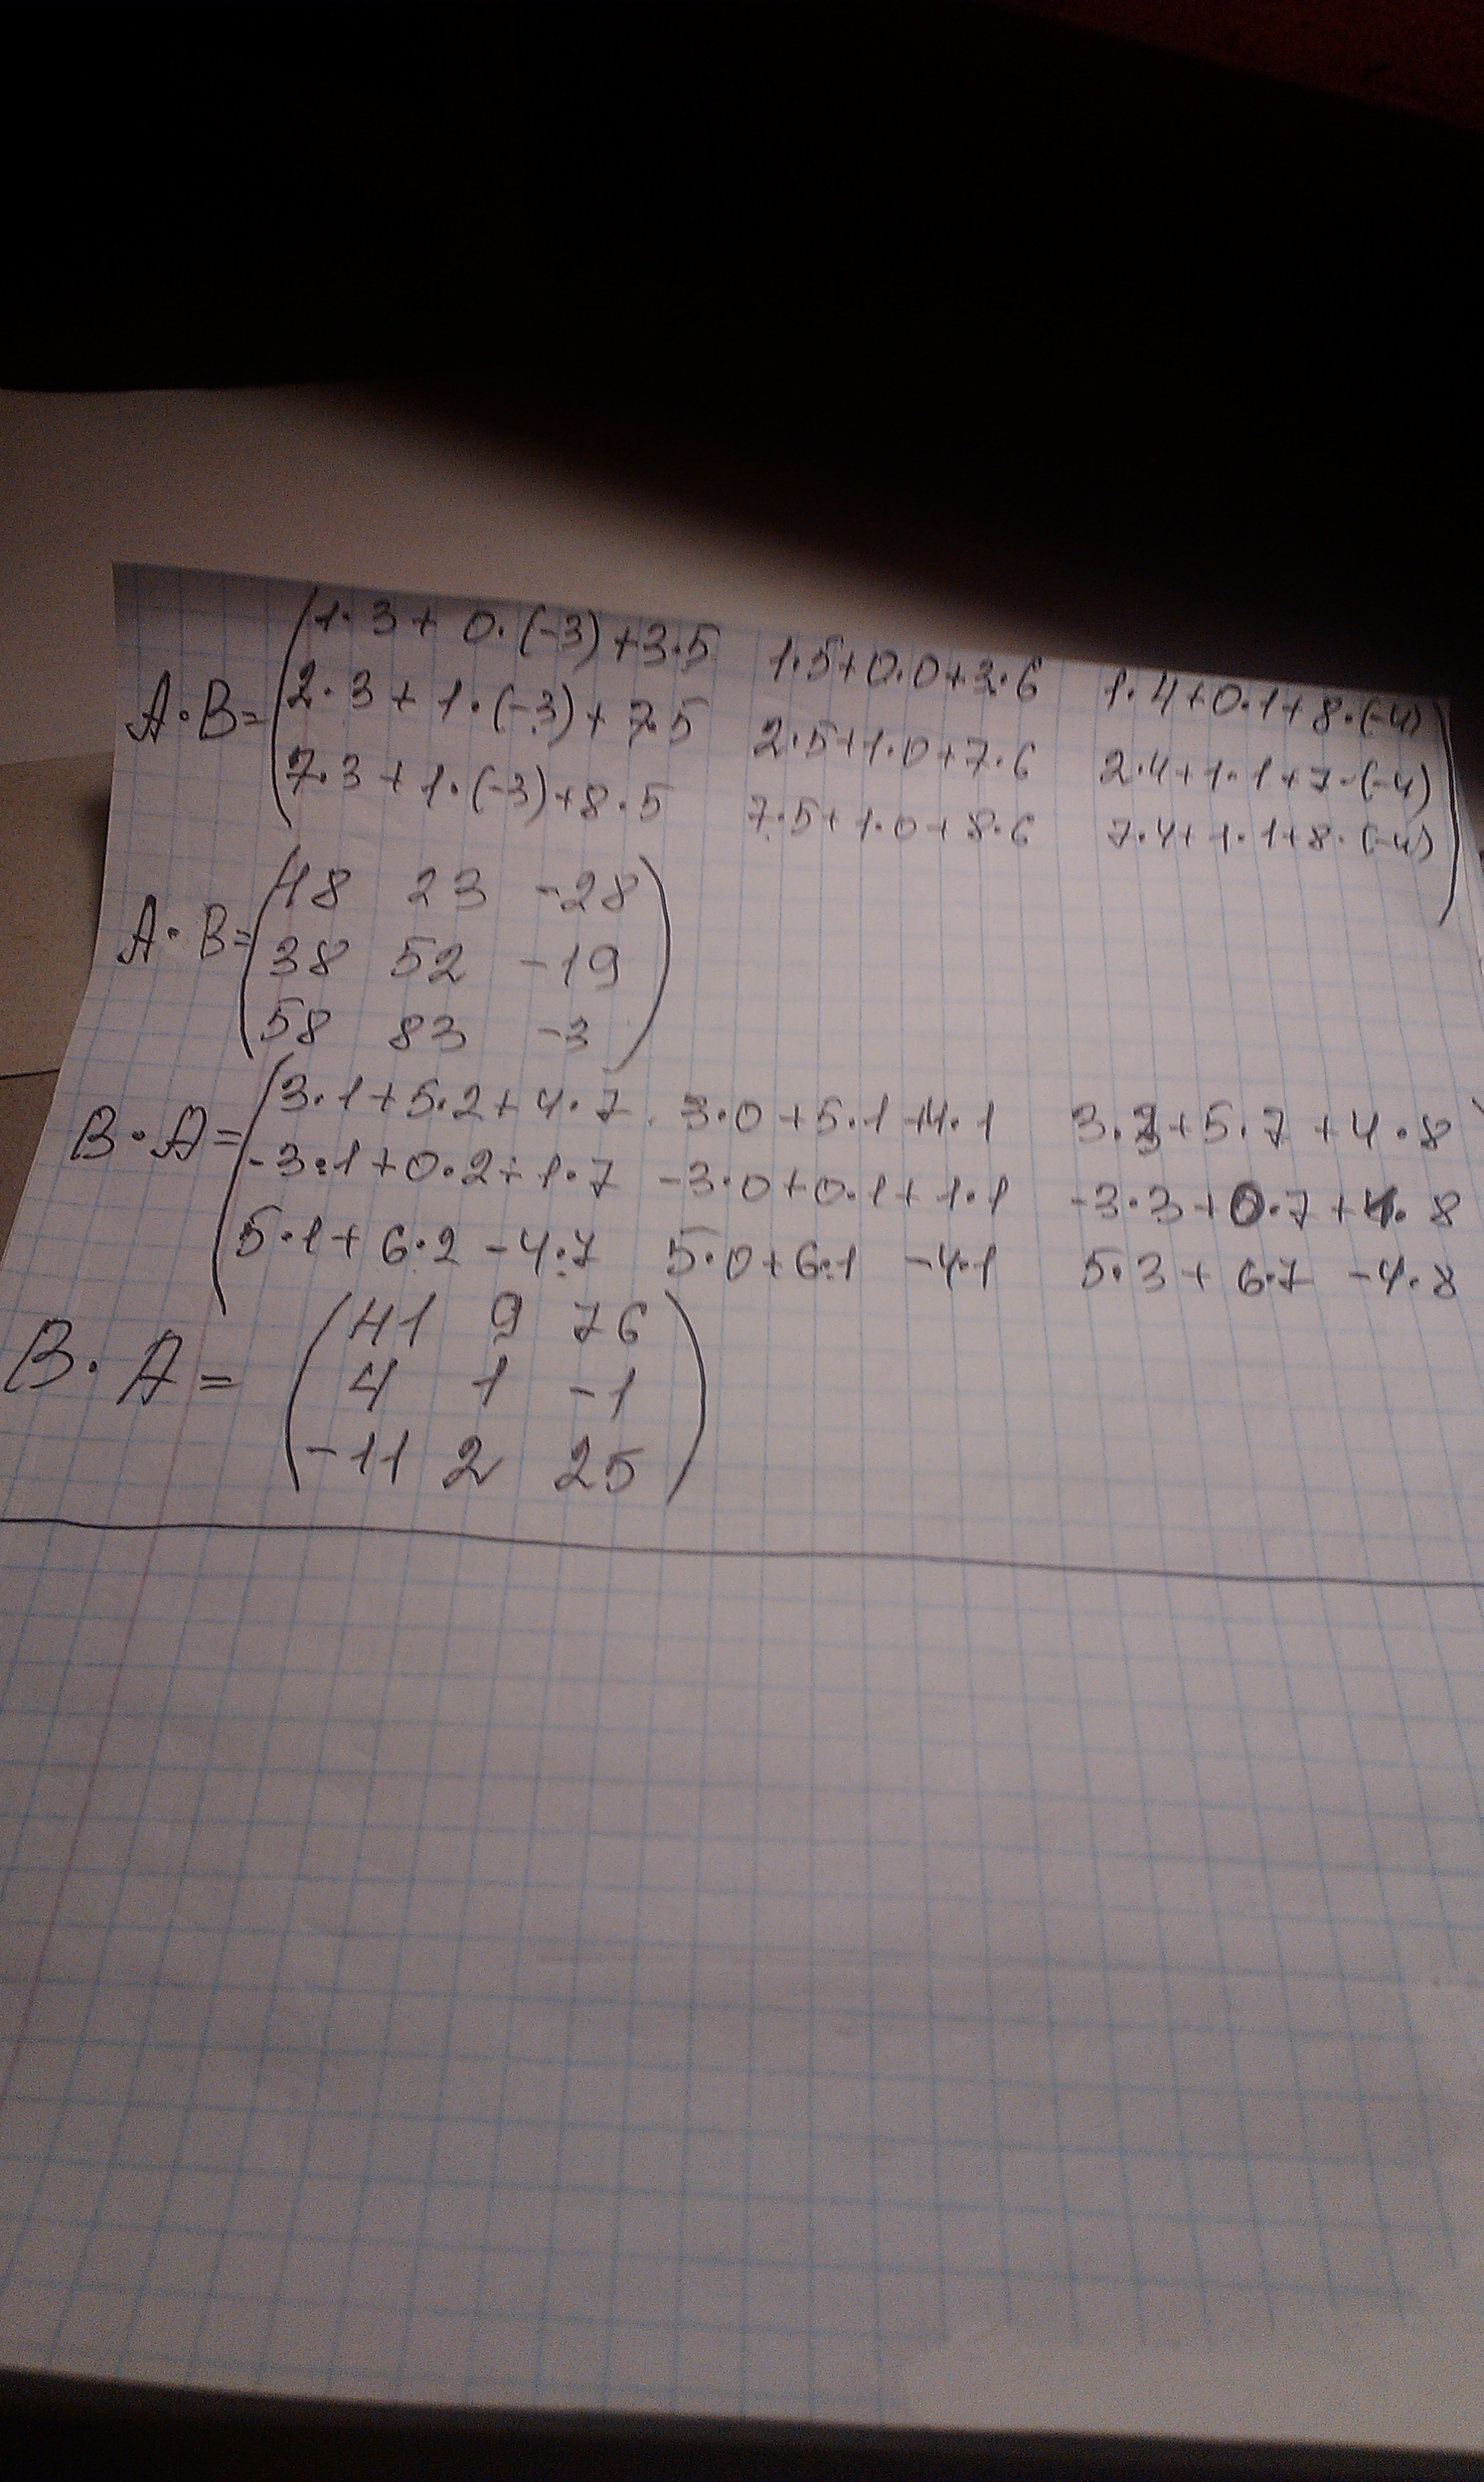 1·3+ 0·(-3)+3·5 1·5+0·0+3·6 1·4+0·1+8·(-4)
A·B= 2·3+1·(-3)+7·5 2·5+1·0+7·6 2·4+1·1+7·(-4)
7·3+1·(-3)+8·5 7·5+1·0+8·6 7·4+1·1+8·(-4)
18 23 -28
A·B= 38 52 -19
58 83 -3
3·1+5·2+4·7 3·0+5·1+4·1 3·3+5·7+4·8
B·A= -3·1+0·2+1·7 -3·0+0·1+1·1 -3·3+0·7+1·8
5·1+6·2-4·7 5·0+6·1-4·1 5·3+6·7-4·8
41 9 76
B·A= 4 1 -1
-11 2 25